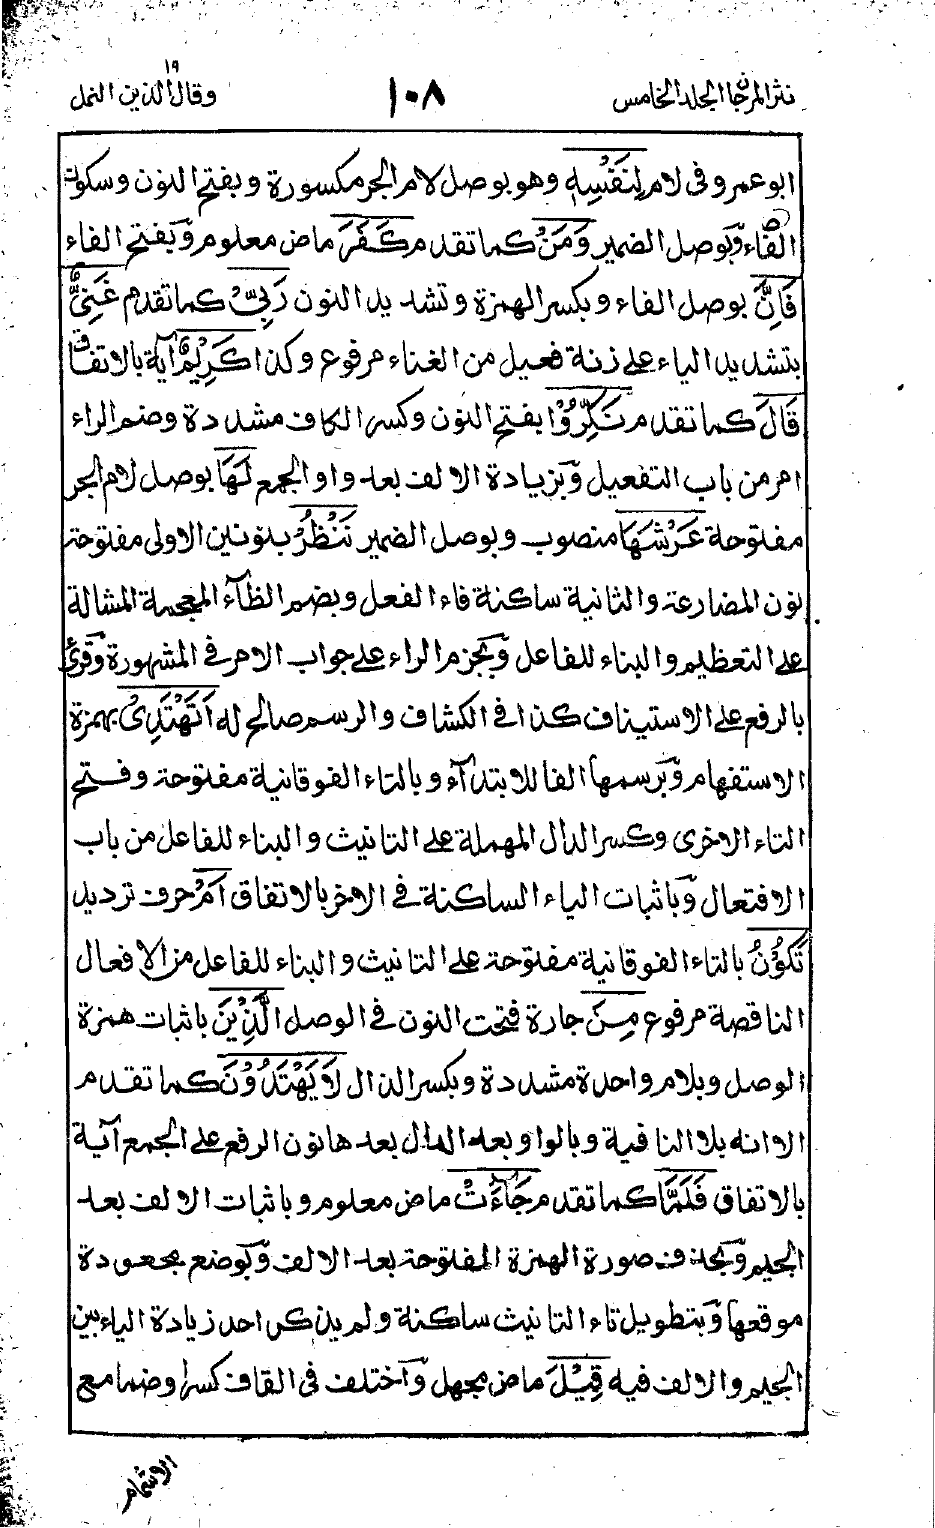 نثر المرجان المجلد الخامس
١٠٨
١٩
وقال الذين النمل
ابو عمرو فى لام لِنَفْسِهٖ وهو بوصل لام الجر مكسورة وبفتح النون وسكون
الفاء وَبوصل الضمير وَمَنْ كما تقدم كَفَرَ ماض معلوم وَبفتح الفاء
فَاِنَّ بوصل الفاء وبكسر الهمزة وتشديد النون رَبِّيْ كما تقدم غَنِيٌّ
بتشديد الياء على زنة فعيل من الغناء مرفوع وكذا كَرِيْمٌ آية بالاتفاق
قَالَ كما تقدم نَكِّرُوْا بفتح النون وكسر الكاف مشددة وضم الراء
امر من باب التفعيل وَبزيادة الالف بعد واو الجمع لَهَا بوصل لام الجر
مفتوحة عَرْشَهَا منصوب وبوصل الضمير نَنْظُرْ بنونين الاولى مفتوحة
نون المضارعة والثانية ساكنة فاء الفعل وبضم الظآء المعجمة المشالة
على التعظيم والبناء للفاعل وَبجزم الراء على جواب الامر فى المشهورة وَقرئ
بالرفع على الاستيناف كذا فى الكشاف والرسم صالح له اَتَهْتَدِيْ بهمزة
الاستفهام وَبرسمها الفا للابتدآء وبالتاء الفوقانية مفتوحة وفتح
التاء الاخرى وكسر الدال المهملة على التانيث والبناء للفاعل من باب
الافتعال وَباثبات الياء الساكنة فى الاخر بالاتفاق اَمْ حرف ترديد
تَكُوْنُ بالتاء الفوقانية مفتوحة على التانيث والبناء للفاعل من الافعال
الناقصة مرفوع مِنَ جارة فتحت النون فى الوصل الَّذِيْنَ باثبات همزة
الوصل وبلام واحدة مشددة وبكسر الذال لَا يَهْتَدُوْنَ كما تقدم
الا انه بلا النافية وبالواو بعد الدال بعدها نون الرفع على الجمع آية
بالاتفاق فَلَمَّا كما تقدم جَآءَتْ ماض معلوم وباثبات الالف بعد
الجيم وَبحذف صورة الهمزة المفتوحة بعد الالف وَبوضع مجعودة
موقعها وَبتطويل تاء التانيث ساكنة ولم يذكر احد زيادة الياء بين
الجيم والالف فيه قِيْلَ ماض مجهل وَاختلف فى القاف كسرا وضما مع
الاشمام